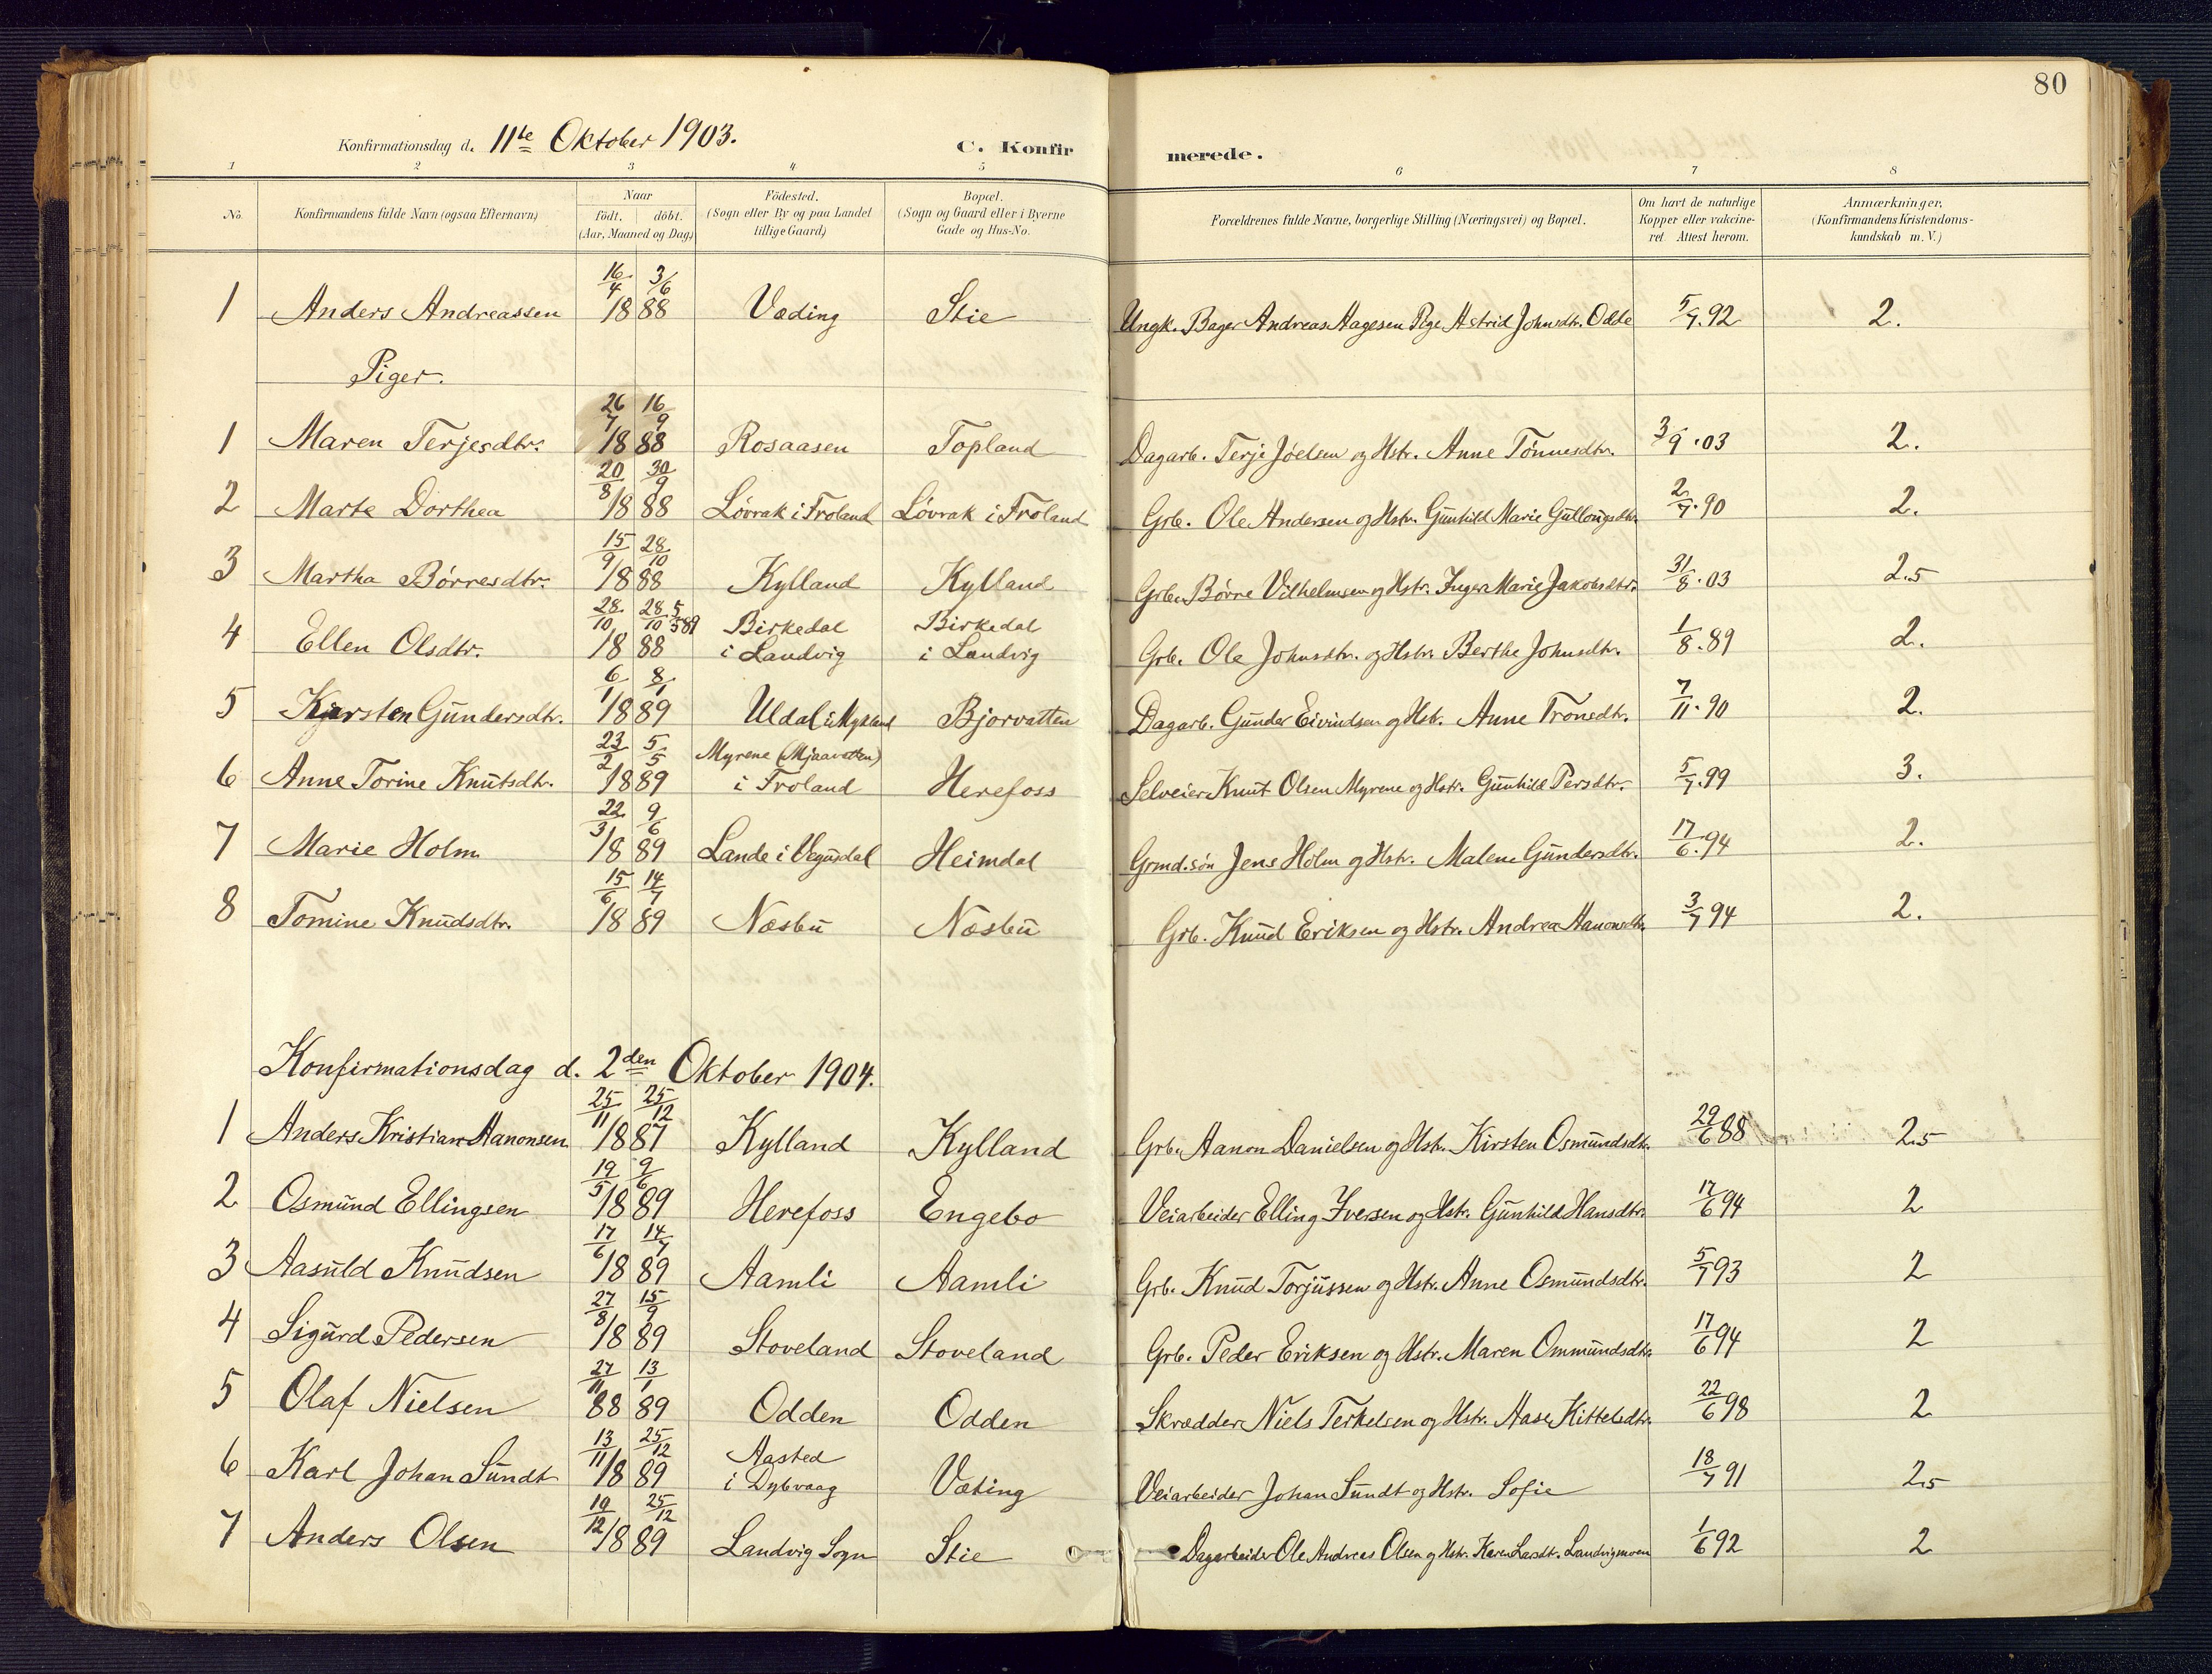 80
Konfirmationsdag d. 11te Oktober 1903. C. Konfirmerede.
1 2 3 4 5 6 7 8
No. Konfirmandens fulde Navn (ogsaa Efternavn) Naar födt. döbt. (Aar, Maaned og Dag) Födested. (Sogn eller By og paa Landet tillige Gaard) Bopæl. (Sogn og Gaard eller i Byerne Gade og Hus-No. Forældrenes fulde Navne, borgerlige Stilling (Næringsvei) og Bopæl. Om havt de naturlige Kopper eller vakcineret. Attest herom. Anmærkninger. (Konfirmandens Kristendomskundskab m. V.)
1 Anders Andreassen 16/4 3/6 1888 Væding Stie Ungk. Bager Andreas Aagesen Pige Astrid Johnsdtr. Odde 5/7.92 2.
Piger.
1 Maren Terjesdtr. 26/7 16/9 1888 Rosaasen Topland Dagarb. Terje Jöelsen og Hstr. Anne Tönnesdtr. 3/9.03 2.
2 Marte Dorthea 20/8 30/9 1888 Lövrak i Froland Lövrak i Froland Grb. Ole Andersen og Hstr. Gunhild Marie Gullougsdtr. 2/7.90 2.
3 Martha Börresdtr. 15/9 28/10 1888 Kylland Kylland Grb. Börre Vilhelmsen og Hstr. Inger Marie Jakobsdtr. 31/8.03 2.5
4 Ellen Olsdtr. 28/10 28/10 5/5 89 1888 Birkedal i Landvig Birkedal i Landvig Grb. Ole Johnsdtr. og Hstr. Berthe Johnsdtr. 1/8.89 2.
5 Kjersten Gundersdtr. 6/1 8/1 1889 Uldal i Mykland Bjorvatten Dagarb. Gunder Eivindsen og Hstr. Anne Tronsdtr. 7/11.90 2.
6 Anne Torine Knutsdtr. 23/2 5/5 1889 Myrene (Mjaavatten) i Froland Herefoss Selveier Knut Olsen Myrene og Hstr. Gunhild Persdtr. 5/7.99 3.
7 Marie Holm 22/3 9/6 1889 Lande i Vegusdal Heimdal Grmd.sön Jens Holm og Hstr. Malene Gundersdtr. 17/6.94 2.
8 Tomine Knudsdtr. 15/6 14/7 1889 Næsbu Næsbu Grb. Knud Eriksen og Hstr. Andrea Aanonsdtr. 3/7 94 2.
Konfirmationsdag d. 2den Oktober 1904.
1 Anders Kristian Aanonsen 25/11 25/12 1887 Kylland Kylland Grb. Aanon Danielsen og Hstr. Kirsten Osmundsdtr. 29/6 88 2.5
2 Osmund Ellingsen 19/5 9/6 1889 Herefoss Engebo Veiarbeider Elling Iversen og Hstr. Gunhild Hansdtr. 17/6 94 2
3 Aasuld Knudsen 17/6 14/7 1889 Aamli Aamli Grb. Knud Torjussen og Hstr. Anne Osmundsdtr. 5/7 93 2
4 Sigurd Pedersen 27/8 15/9 1889 Stoveland Stoveland Grb. Peder Eriksen og Hstr. Maren Ommundsdtr. 17/6 94 2
5 Olaf Nielsen 27/11 88 13/1 89 Odden Odden Skrædder Niels Terkelsen og Hstr. Aase Kittelsdtr. 22/6 98 2
6 Karl Johan Sundt 13/11 25/12 1889 Aasted i Dybvaag Væting Veiarbeider Johan Sundt og Hstr. Sofie 18/7 91 2.5
7 Anders Olsen 19/12 25/12 1889 Landvig Sogn Stie Dagarbeider Ole Andreas Olsen og Hstr. Karen Larsdtr. Landvigmoen 1/6 92 2